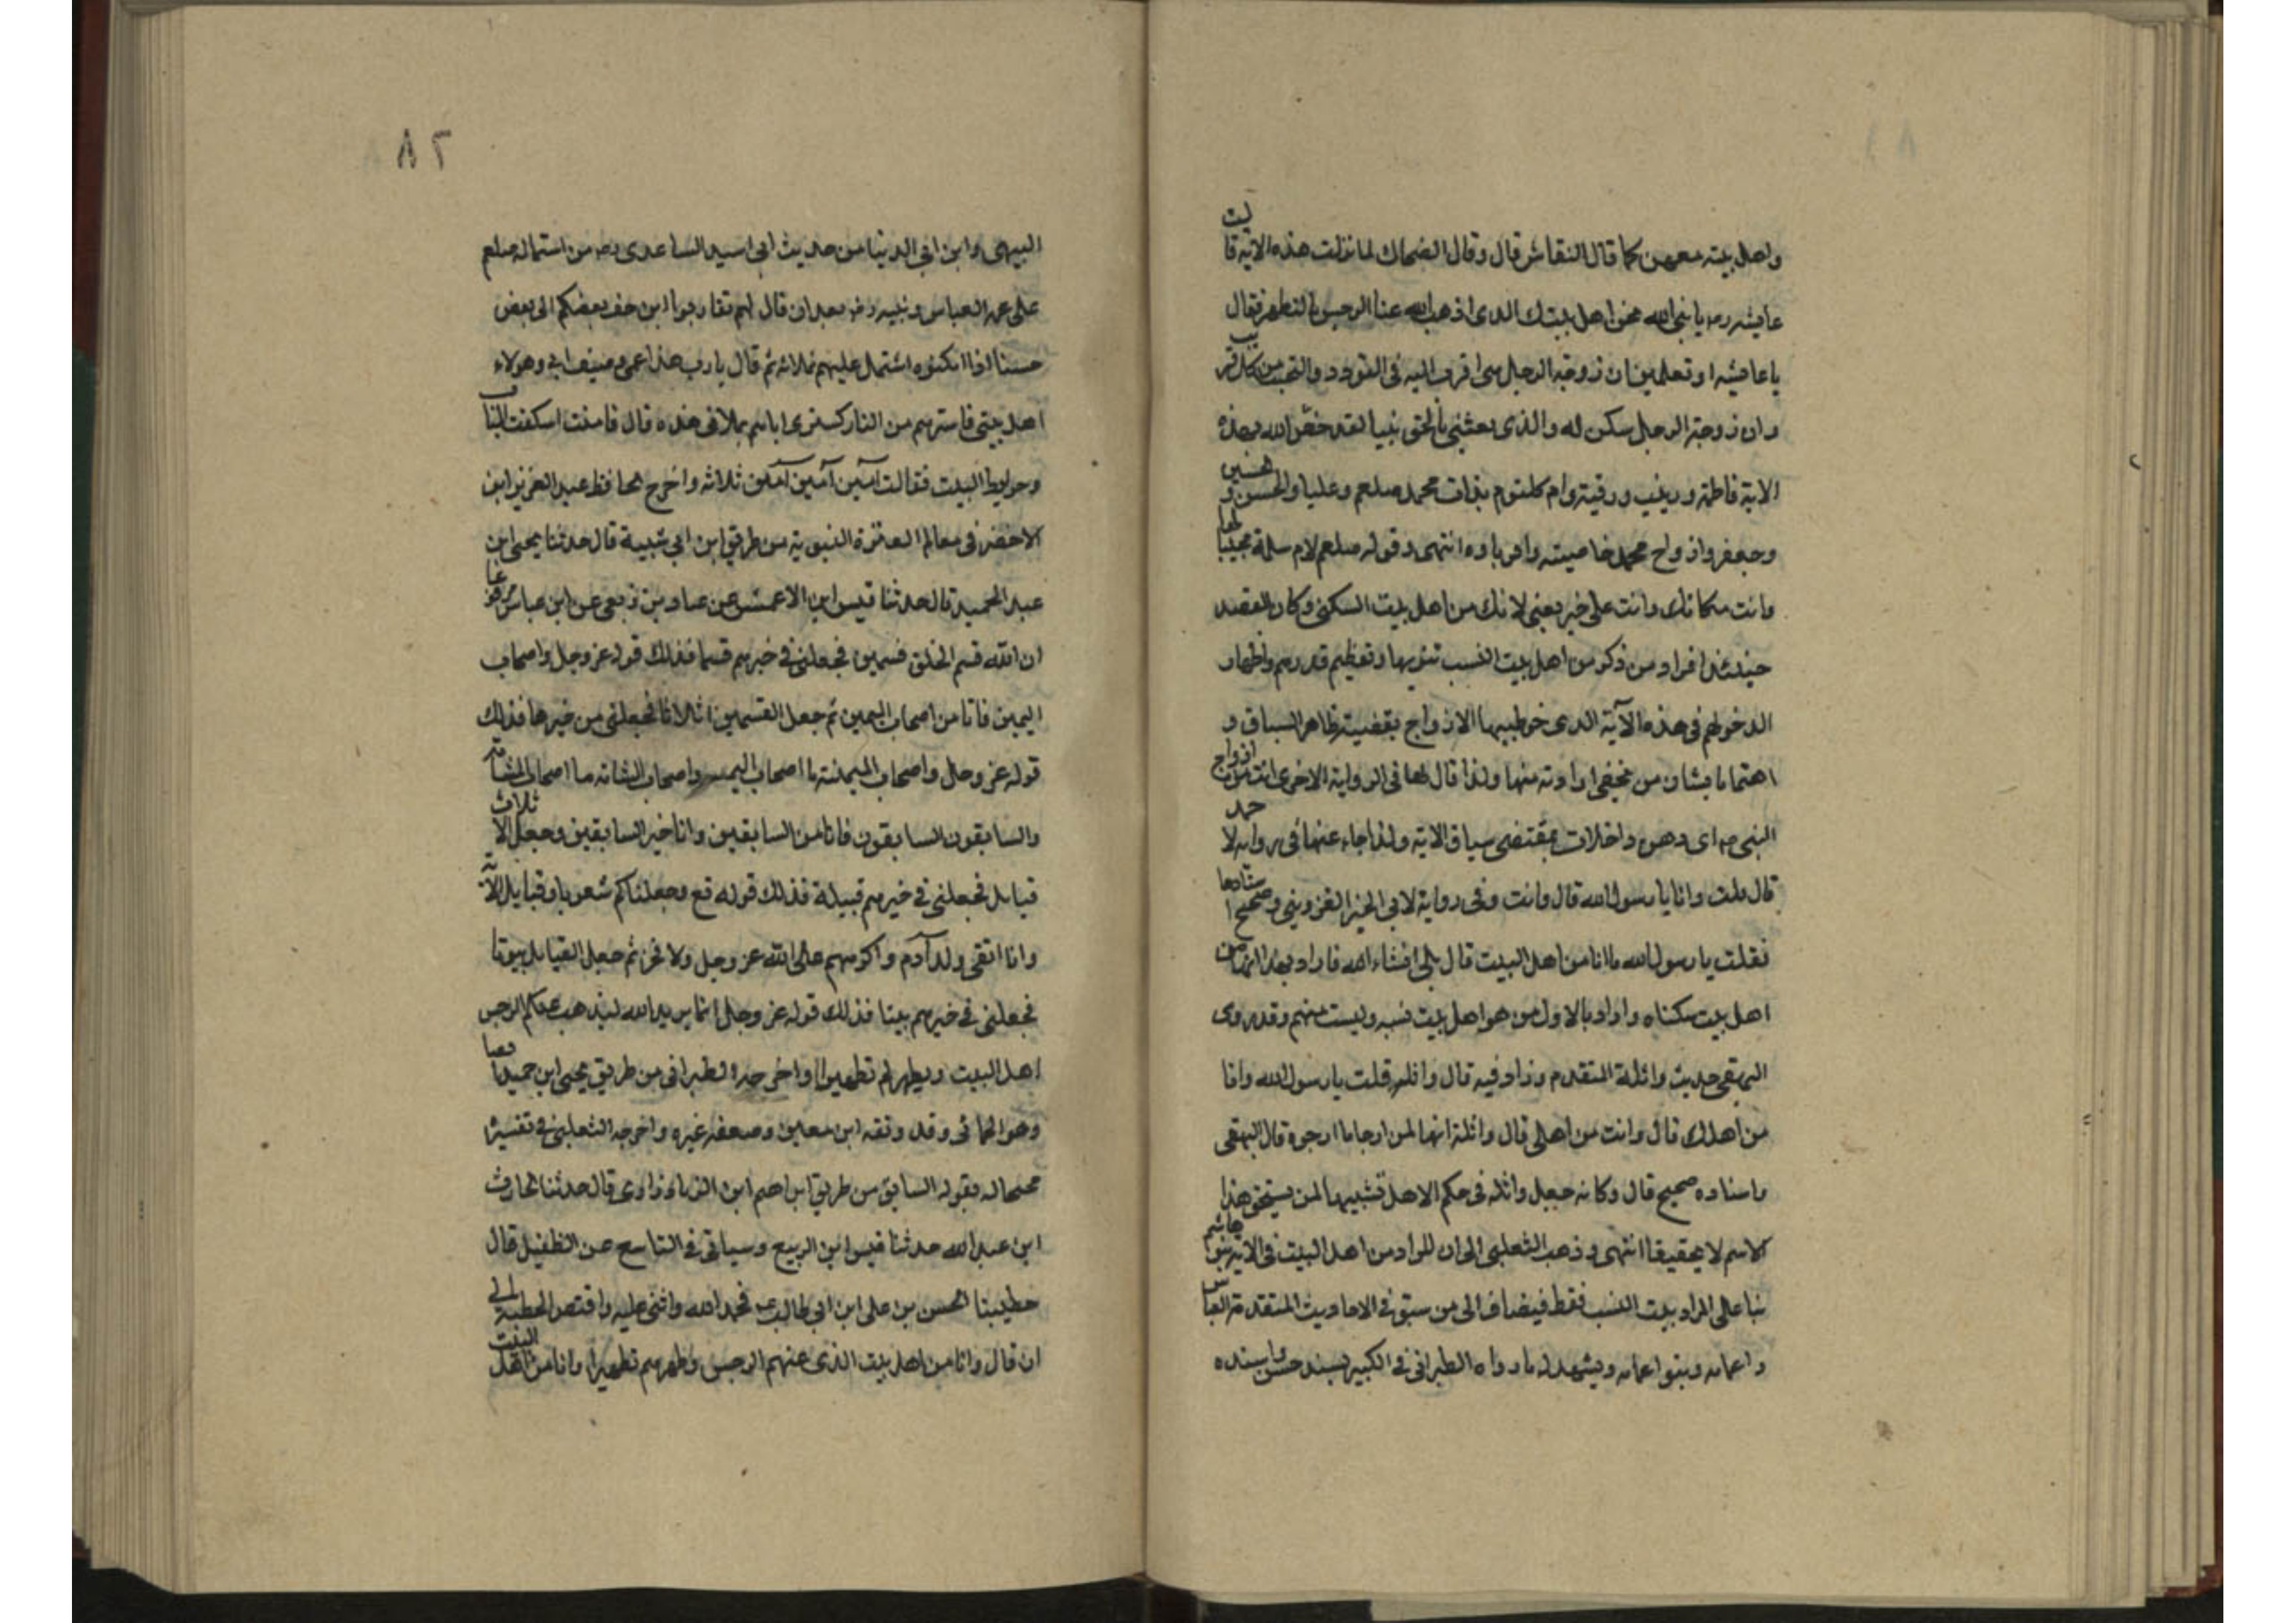 واهل بيته معهن كما قال النقاش قال وقال الضحاك لما نزلت هذه الاية قالت
عايشه رضه يا نبى الله نحن اهل بيتك الدى اذهب الله عنا الرجس بالتطهر فقال
يا عايشه او تعلمين ان زوجة الرجل هى اقرب اليه فى التودد والتحبب من كل قريب
وان زوجة الرجل سكن له والذى بعثنى بالحق نبيا لقد خص الله بهذه
الاية فاطمة وزينب ورقية وام كلثوم بنات محمد صلعم وعليا والحسن والحسين
وجعفر وازواج محمد خاصيته واقرباوه انتهى وقوله صلعم لام سلمة مجيبا لها
وانت مكانك وانت على خير يعنى لانك من اهل بيت السكنى وكان القصد
حينئذ افراد من ذكر من اهل بيت النسب تنويها وتعظيم قدرهم واظهار
الدخولهم فى هذه الآية الدى خوطب بها الازواج بقضية ظاهر السياق و
اهتماما بشان من يخفى ارادته منها ولذا قال لها فى الرواية الاخرى انت من ازواج
النبى صه اى وهن داخلات بمقتضى سياق الاية ولذا جاء عنها فى رواية لاحمد
قال قلت وانا يا رسول الله قال وانت وفى رواية لابى الخير القزوينى وصحيح استادها
فقلت يا رسول الله ما انا من اهل البيت قال بلى انشاء الله فاراد بهذا انها من
اهل بيت سكناه واراد بالاول من هو اهل بيت نسبه وليست منهم وقد روى
البهقى حديث واثلة المتقدم وزاد فيه قال واثله قلت يا رسول الله وانا
من اهلك قال وانت من اهلى قال واثلة انها لمن ارجا ما ارجوه قال البهقى
واسناده صحيح قال وكانه جعل واثله فى حكم الاهل تشبيها لمن يستحق هذا
الاسم لا تحقيقا انتهى وذهب الثعلبى الى ان المراد من اهل البيت فى الاية بنوا هاشم
بنا على المراد بيت النسب فقط فيضاف الى من سبق فى الاحاديث المتقدمة العباس
واعمامه وبنوا اعمامه ويشهد له ما رواه الطبرانى فى الكبير بسند حسن واسنده
٨٢
البيهى وابن ابى الدنيا من حديث ابى اسيد الساعدى رضه من اشتماله صلعم
على عمه العباس وبنيه رضه بعد ان قال لهم تقاربوا يزحف بعضكم الى بعض
اذا امكنوه اشتمل عليهم بملائه ثم قال يارب هذا عمى وصنو ابى وهولاء
اهل بيتى فاسترهم من النار كسترى اياهم بملائى هذه قال فامنت اسكفت الباب
وحوايط البيت فقالت آمين آمين آمين ثلاثه واخرج الحافظ عبد العزيز ابن
الاخضر فى معالم العترة النبوية من طريق ابن ابى شيبة قال حدثنا يحيى ابن
عبد الحميد قال حدثنا قيس ابن الاعمش عن عباد بن ربعى عن ابن عباس مرفوعا
ان الله قسم الخلق قسمين فجعلنى فى خيرهم قسما فذلك قوله عز وجل واصحاب
اليمين فانا من اصحاب اليمين ثم جعل القسمين اثلاثا فجعلنى من خيرها فذلك
قوله عز وجل واصحاب الميمنته ما اصحاب واصحاب الشامه ما اصحاب المشامة
والسابقون السابقون فانا من السابقين وانا خير السابقين وجعل الاثلاث
قبايل فجعلنى فى خيرهم قبيلة فذلك قوله تع وجعلناكم شعوبا وقبايل الآية
وانا اتقى ولد آدم واكرمهم على الله عز وجل ولا فخر ثم جعل القبايل بيوتا
فجعلنى فى خيرهم بيتا فذلك قوله عز وجل انما يريد الله ليذهب عنكم الرجس
اهل البيت ويطهركم تطهيرا واخرجه الطبرانى من طريق يحيى ابن حميد معا
وهو الحمانى وقد وثقه ابن معين وضعفه غيره واخرجه الثعلبى فى تفسيره
محتجا له بقوله السابق من طريق ابراهيم ابن قال حدثنا الحارث
ابن عبد الله حدثنا قيس ابن الربيع وسياتى فى التاسع عن الطفيل قال
خطبنا الحسن بن على ابن ابى طالب عم فحمد الله واثنى عليه واقتص الخطبة الى
ان قال وانا من اهل بيت الذى عنهم الرجس وطهرهم تطهيرا وانا من اهل البيت